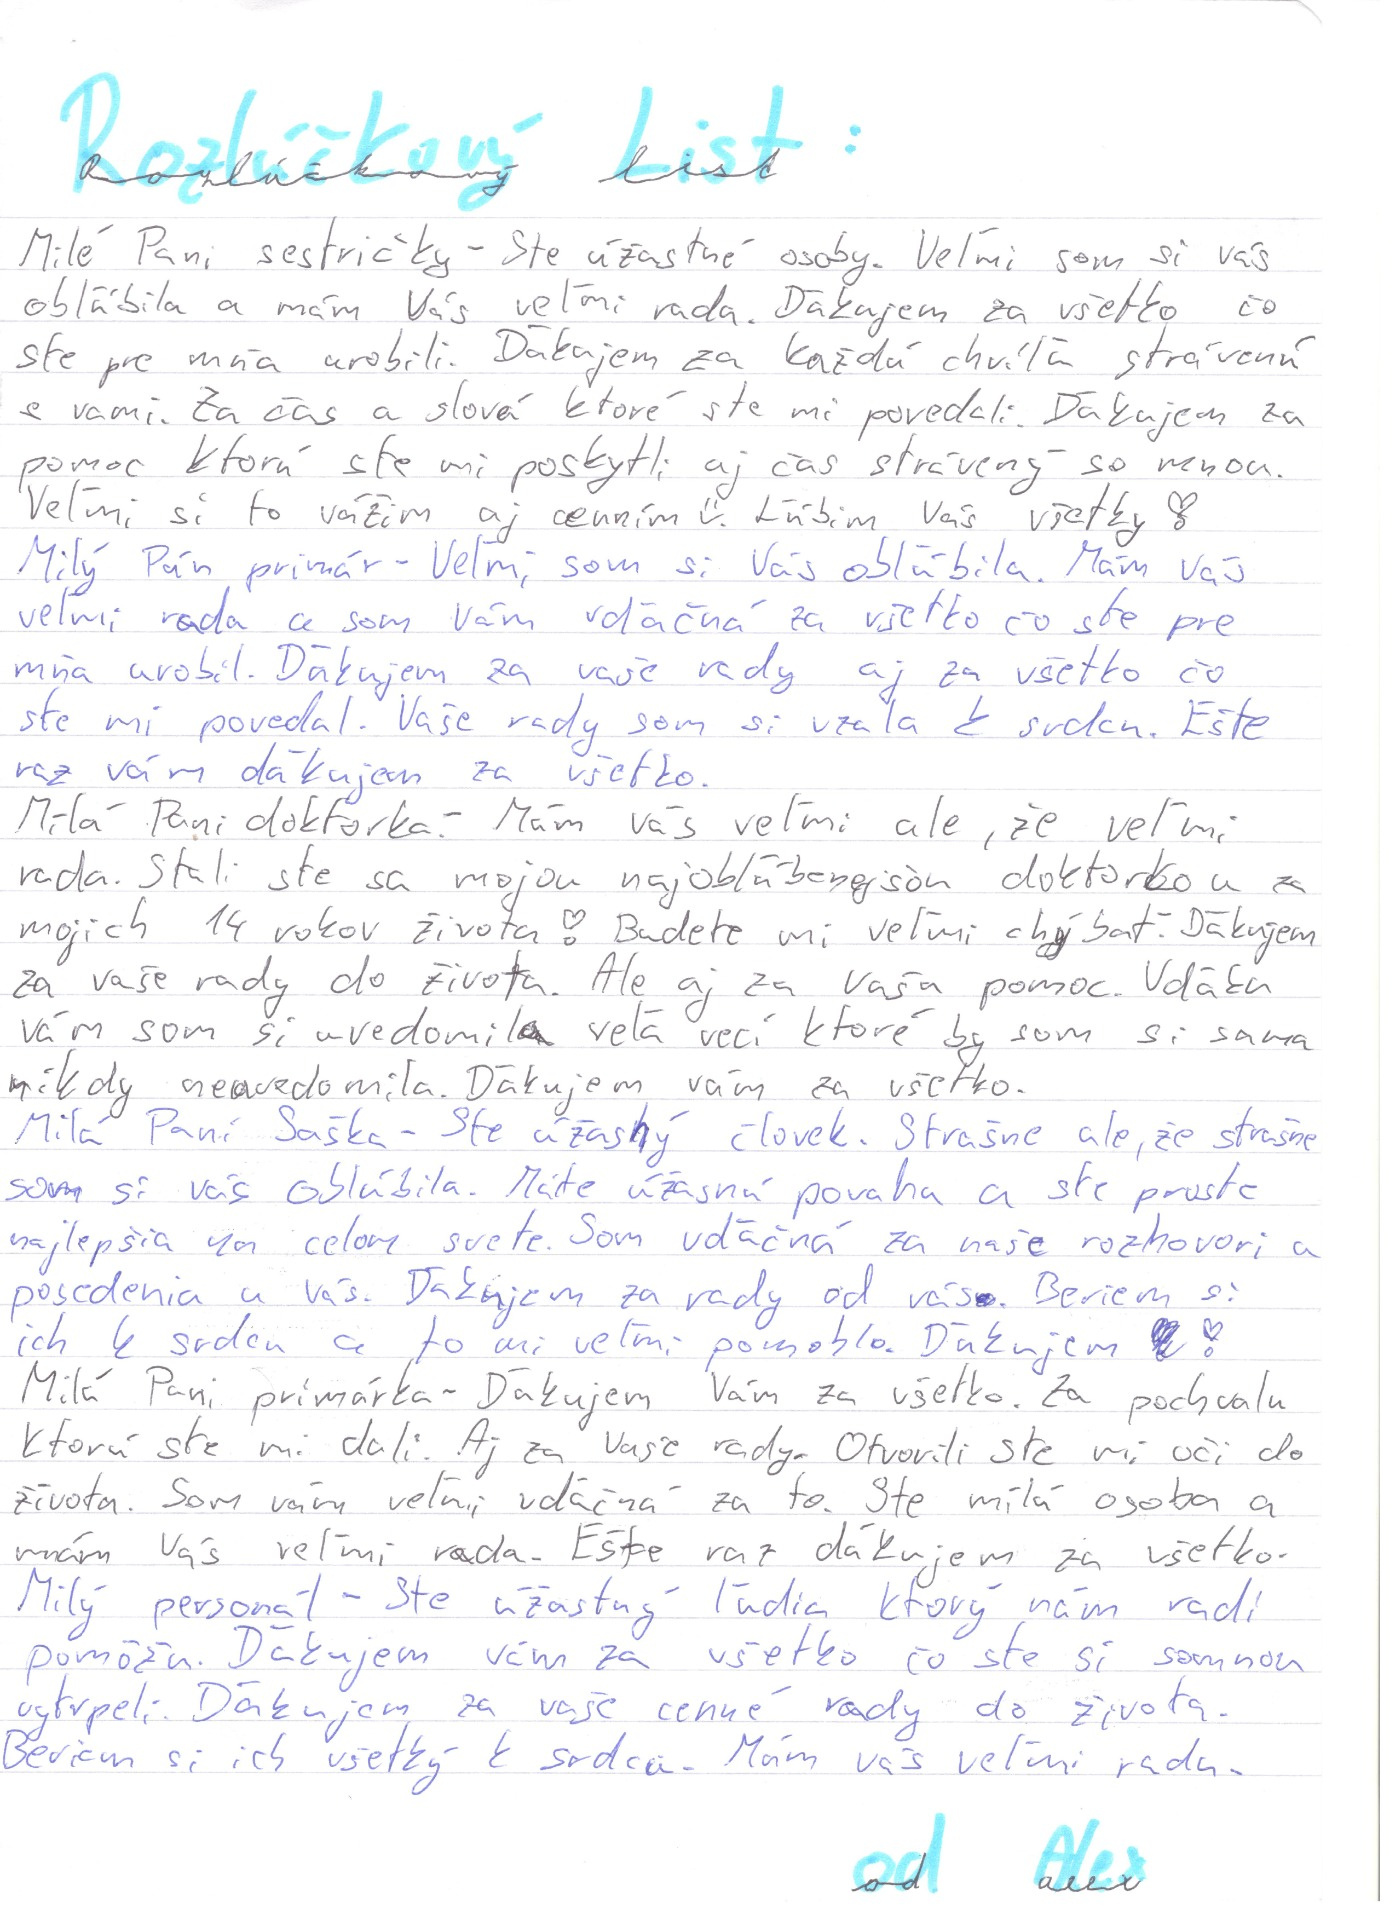 Rozlúčkový List:
Rozlúčkový List
Milé Pani sestričky - Ste úžastné osoby. Veľmi som si vás
obľúbila a mám Vás veľmi rada. Ďakujem za všetko čo
ste pre mňa urobili. Ďakujem za každú chvíľu strávenú
s vami. Za čas a slová ktoré ste mi povedali. Ďakujem za
pomoc ktorú ste mi poskytli aj čas strávený so mnou.
Veľmi si to vážim aj cenním Ü. Ľúbim Vás všetky
Milý Pán primár - Veľmi som si Vás obľúbila. Mám Vás
veľmi rada a som Vám vďačná za všetko čo ste pre
mňa urobil. Ďakujem za vaše rady aj za všetko čo
ste mi povedal. Vaše rady som si vzala k srdcu. Ešte
raz vám ďakujem za všetko.
Milá Pani doktorka - Mám vás veľmi ale, že veľmi
rada. Stali ste sa mojou najobľúbenejšou doktorkou za
mojich 14 rokov života Budete mi veľmi chýbať. Ďakujem
za vaše rady do života. Ale aj za Vašu pomoc. Vďaka
vám som si uvedomila veľa vecí ktoré by som si sama
nikdy neuvedomila. Ďakujem vám za všetko.
Milá Pani Saška - Ste úžasný človek. Strašne ale, že strašne
som si vás obľúbila. Máte úžasnú povahu a ste proste
najlepšia na celom svete. Som vďačná za naše rozhovori a
posedenia u Vás. Ďakujem za rady od vás. Beriem si
ich k srdcu a to mi veľmi pomohlo. Ďakujem
Milá Pani primárka - Ďakujem Vám za všetko. Za pochvalu
ktorú ste mi dali. Aj za Vaše rady. Otvorili ste mi oči do
života. Som vám veľmi vďačná za to. Ste milá osoba a
mám Vás veľmi rada. Ešte raz ďakujem za všetko.
Milý personál - Ste úžastný ľudia ktorý nám radi
pomôžu. Ďakujem vám za všetko čo ste si somnou
vytrpeli. Ďakujem za vaše cenné rady do života.
Beriem si ich všetký k srdcu. Mám vás veľmi rada.
od Alex
od alex